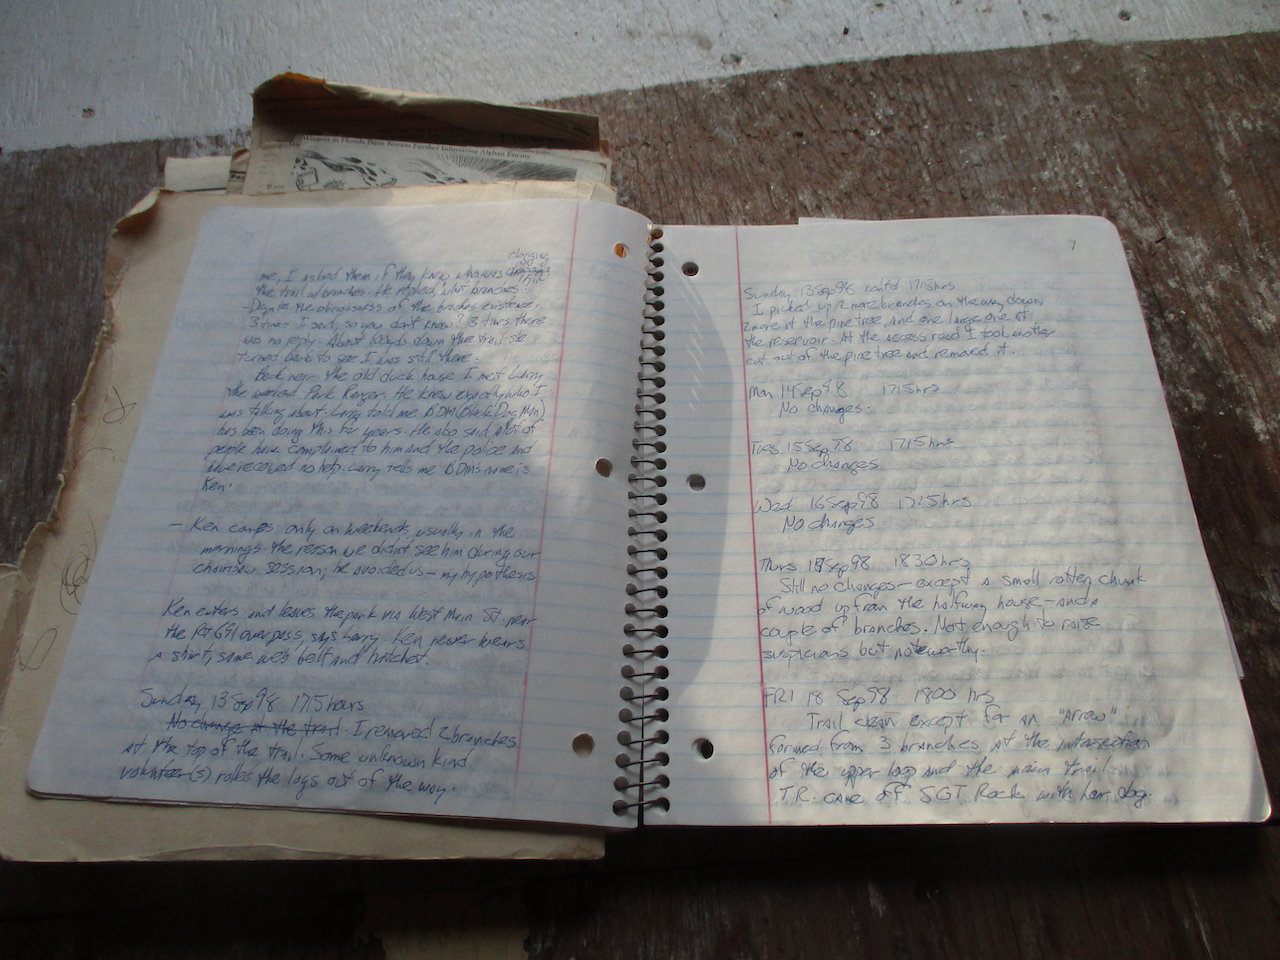 Women in Florida
Afghan Enemy
clogging
me, I asked them if they knew who was
the trail w/branches. He replied, what branches?
the obviousness of the braches existence,
3 times I said, so you don't know? 3 times there
was no reply. About 100yds down the trail she
turned back to see I was still there.
Back near the old duck house I met Larry
the weekend Park Ranger. He knew exactly who I
was talking about. Larry told me BDM (Black Dog Man)
has been doing this for years. He also said a lot of
people have complained to him and the police and
have received no help. Larry tells me BDM's name is
Ken.
— Ken camps only on weekends, usually in the
mornings. the reason we didn't see him during our
chainsaw session, he avoided us — my hypothesis
Ken enters and leaves the park via West Main St near
the Rt 691 overpass, says Larry. Ken never wears
a shirt, same web belt and hatchet.
Sunday, 13 Sep 98 1715 hours
No change at the trail. I removed 2 branches
at the top of the trail. Some unknown kind
volunteer(s) rolled the logs out of the way.
7
Sunday, 13 Sep 98 cont'd 1715hrs
I picked up 2 more branches on the way down,
2 more at the pine tree, and one large one at
the reservoir. At the access road I took another
cut out of the pine tree and removed it.
Mon 14 Sep 98 1715hrs
No changes.
Tues 15 Sep 98 1715hrs
No changes
Wed 16 Sep 98 1725hrs
No changes
Thurs 17 Sep 98 1830hrs
Still no changes — except a small rotten chunk
of wood up from the halfway house — and a
couple of branches. Not enough to raise
suspicions but noteworthy.
FRI 18 Sep 98 1800 hrs
Trail clean except for an "arrow"
formed from 3 branches at the intersection
of the upper log and the main trail.
T.R. came off SGT Rock with her dog.